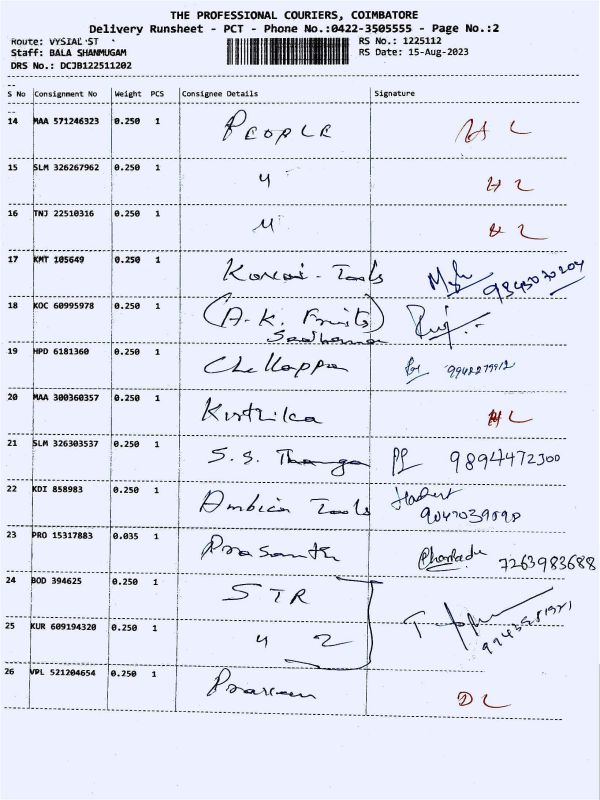 THE PROFESSIONAL COURIERS, COIMBATORE
Delivery Runsheet - PCT - Phone No.:0422-3505555 - Page No.:2
Route: VYSIAL ST RS No.: 1225112
Staff: BALA SHANMUGAM RS Date: 15-Aug-2023
DRS No.: DCJB122511202
S No Consignment No Weight PCS Consignee Details Signature
14 MAA 571246323 0.250 1 PEOPLE
15 SLM 326267962 0.250 1 4
16 TNJ 22510316 0.250 1
17 KMT 105649 0.250 1 Kovai - Tools 9345030204
18 KOC 60995978 0.250 1 (A.K. Fruits)
19 HPD 6181360 0.250 1 Chellappa
20 MAA 300360357 0.250 1 Kirthika
21 SLM 326303537 0.250 1 S.S. Thanga 9894472300
22 KDI 858983 0.250 1 Ambica Tools
23 PRO 15317883 0.035 1 Prasanth 7263983688
24 BOD 394625 0.250 1 STR
25 KUR 609194320 0.250 1 4 2
26 VPL 521204654 0.250 1 Praveen DL